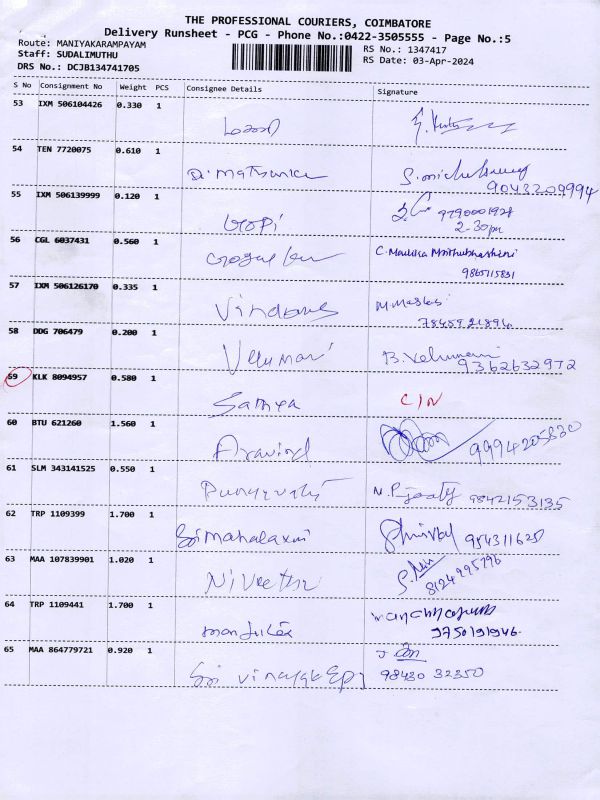 THE PROFESSIONAL COURIERS, COIMBATORE
Delivery Runsheet - PCG - Phone No.:0422-3505555 - Page No.:5
Route: MANIYAKARAMPAYAM
RS No.: 1347417
Staff: SUDALIMUTHU
RS Date: 03-Apr-2024
DRS No.: DCJB134741705
S No Consignment No Weight PCS Consignee Details Signature
53 IXM 506104426 0.330 1
54 TEN 7720075 0.610 1
9043209994
55 IXM 506139999 0.120 1
Gopi 9790001928
2-30pm
56 CGL 6037431 0.560 1
C. Maulika Mrithubhashini
9865715831
57 IXM 506126170 0.335 1
58 DDG 706479 0.200 1
Velumani B. Velumani
9362632972
59 KLK 8094957 0.580 1
Sathya C/N
60 BTU 621260 1.560 1
Aravind
61 SLM 343141525 0.550 1
9842153135
62 TRP 1109399 1.700 1
Sri Mahalaxmi 984311620
63 MAA 107839901 1.020 1
8124995796
64 TRP 1109441 1.700 1
9750191946
65 MAA 864779721 0.920 1
J
Sri Vinayak Epj 98430 32350